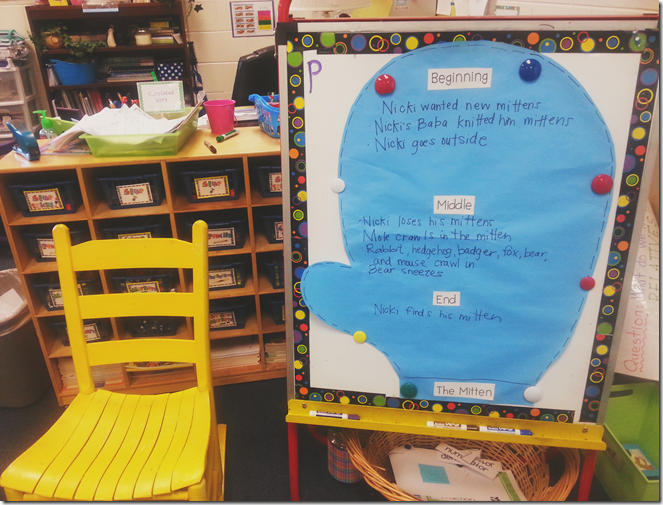 P
Beginning
Nicki wanted new mittens
Nicki's Baba knitted him mittens
• Nicki goes outside
Middle
- Nicki loses his mittens
Mole crawls in the mitten
Rabbit, hedgehog, badger, fox, bear,
and mouse crawl in
Bear sneezes
End
Nicki finds his mitten
The Mitten
Question
RELATIVE